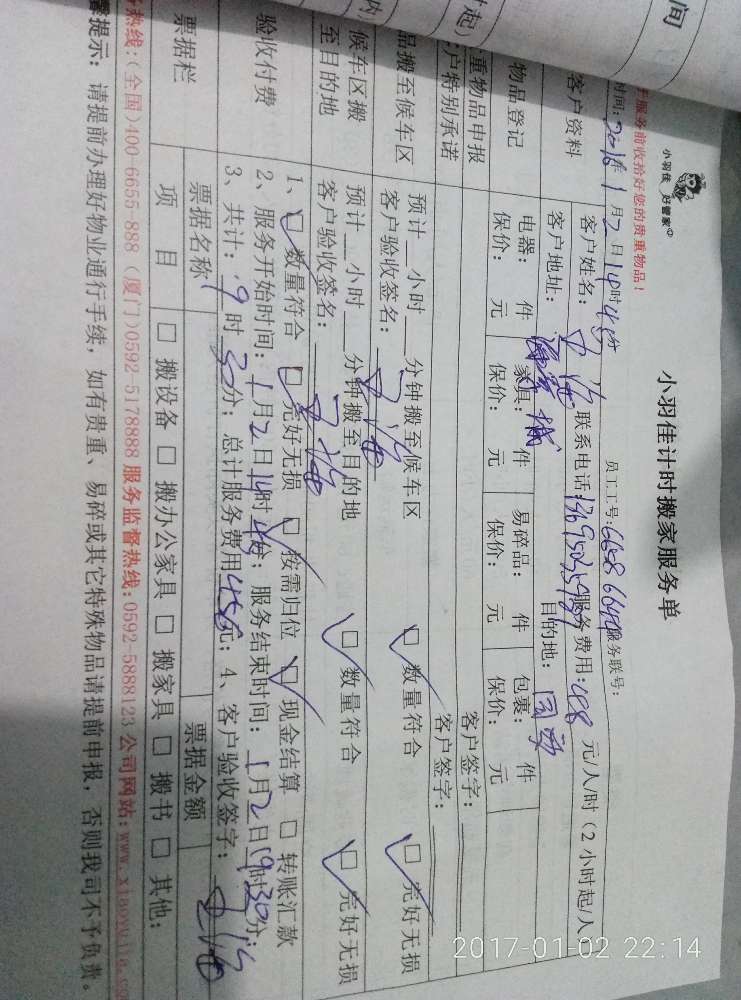 间
内
时起)
小羽佳 好管家
小羽佳计时搬家服务单
服务前收拾好您的贵重物品!
员工工号:6658 服务联号:
时间:2016年1月2日14时45分
服务费用:48元/人/时(2小时起/人
客户资料
客户姓名:
联系电话:
客户地址:
目的地:
物品登记
电器: 件 家具: 件 易碎品: 件 包裹: 件
保价: 元 保价: 元 保价: 元 保价: 元
重物品申报
客户签字:
户特别承诺
客户签字:
品搬至候车区
预计 小时 分钟搬至候车区
客户验收签名:
□ 数量符合 □ 完好无损
候车区搬
至目的地
预计 小时 分钟搬至目的地
客户验收签名:
□ 数量符合 □ 完好无损
验收付费
1、□ 数量符合 □ 完好无损 □ 按需归位 □ 现金结算 □ 转账汇款
2、服务开始时间:1月2日14时45分;服务结束时间:1月2日19时30分;
3、共计:9时30分;总计服务费用456元;4、客户验收签字:
票据栏
票据名称
票据金额
项 目
□ 搬设备 □ 搬办公家具 □ 搬家具 □ 搬书 □ 其他:
热线:(全国)400-6655-888 (厦门)0592-5178888 服务监督热线:0592-5888123 公司网站:www.xiaoyujia.c
提示:请提前办理好物业通行手续,如有贵重、易碎或其它特殊物品请提前申报,否则我司不予负责。
2017-01-02 22:14